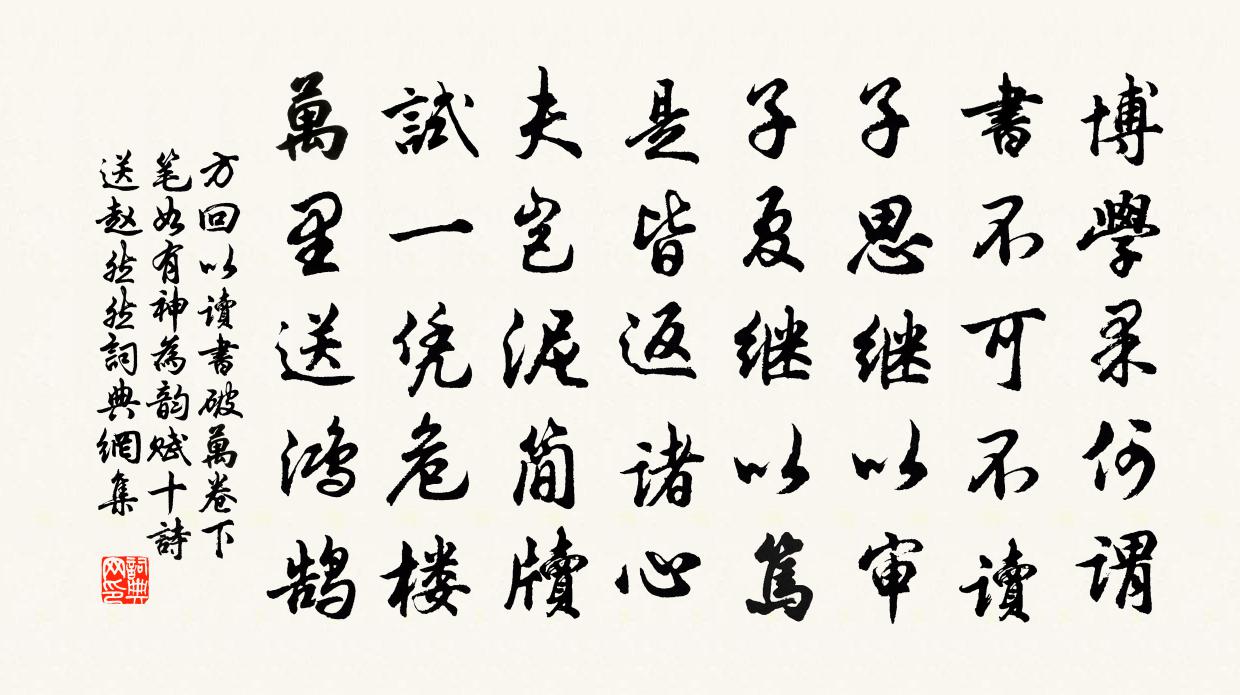 博學果何謂
書不可不讀
子思继以审
子夏继以篤
是皆返諸心
夫岂泥简牘
試一凭危楼
萬里送鸿鹄
方回以讀書破萬卷下
笔如有神為韵赋十詩
送赵然然詞典網集
詞典网印